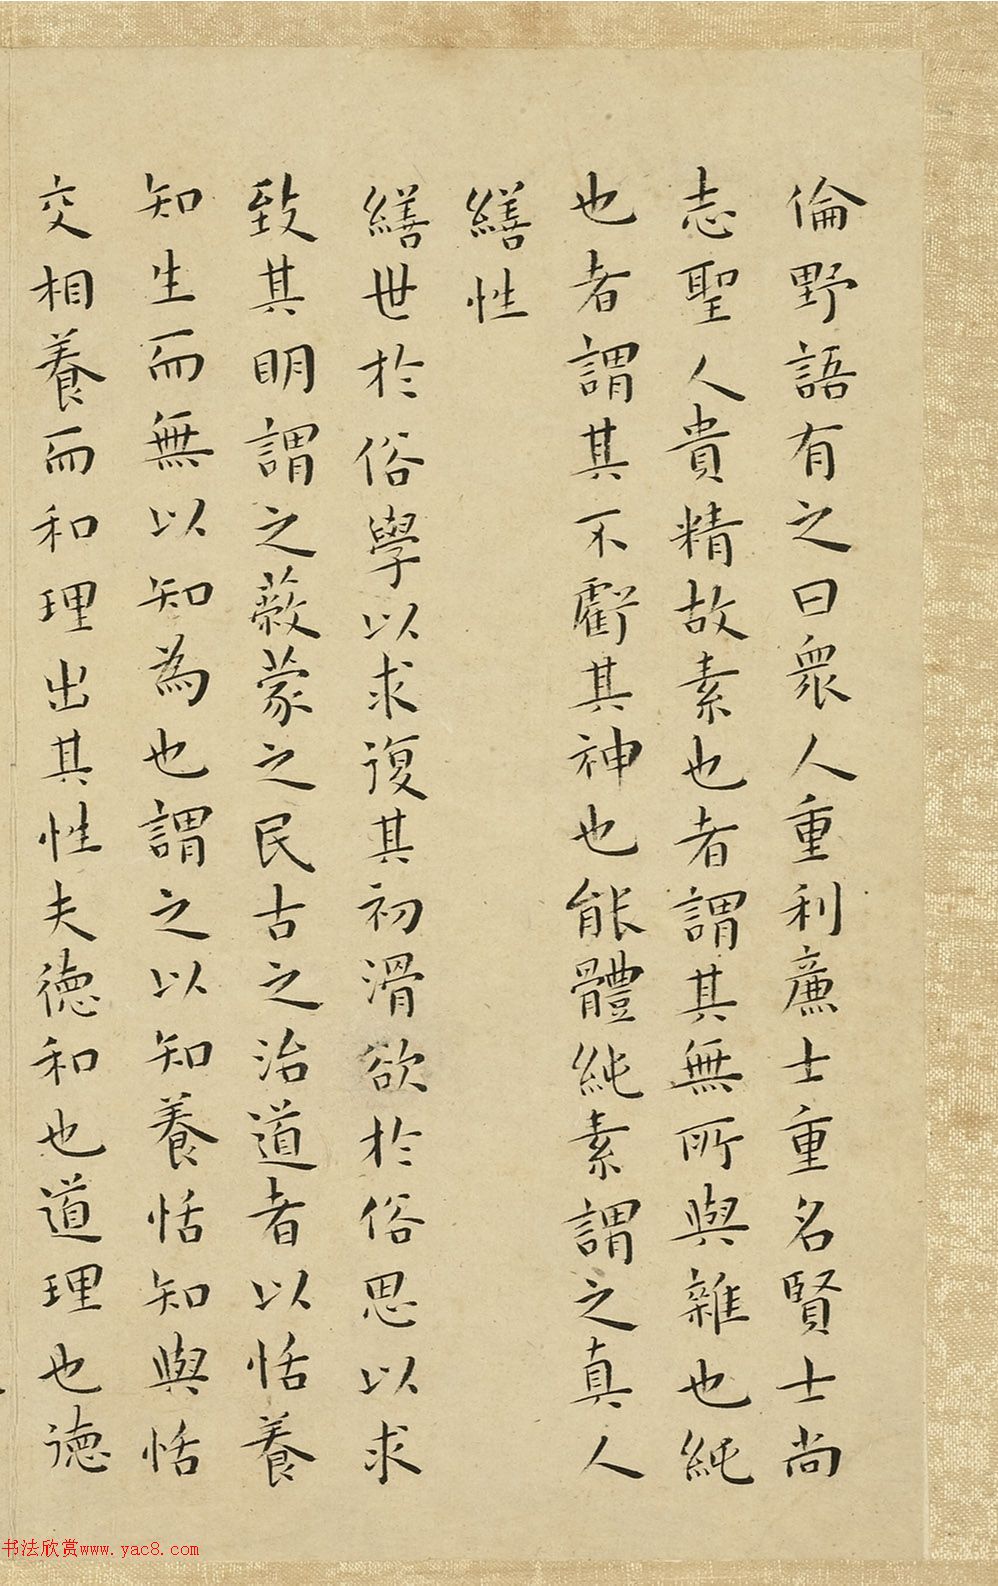 倫野語有之曰衆人重利廉士重名賢士尚
志聖人貴精故素也者謂其無所與雜也純
也者謂其不虧其神也能體純素謂之真人
繕性
繕世於俗學以求復其初滑欲於俗思以求
致其明謂之蔽蒙之民古之治道者以恬養
知生而無以知為也謂之以知養恬知與恬
交相養而和理出其性夫德和也道理也德
书法欣赏www.yac8.com